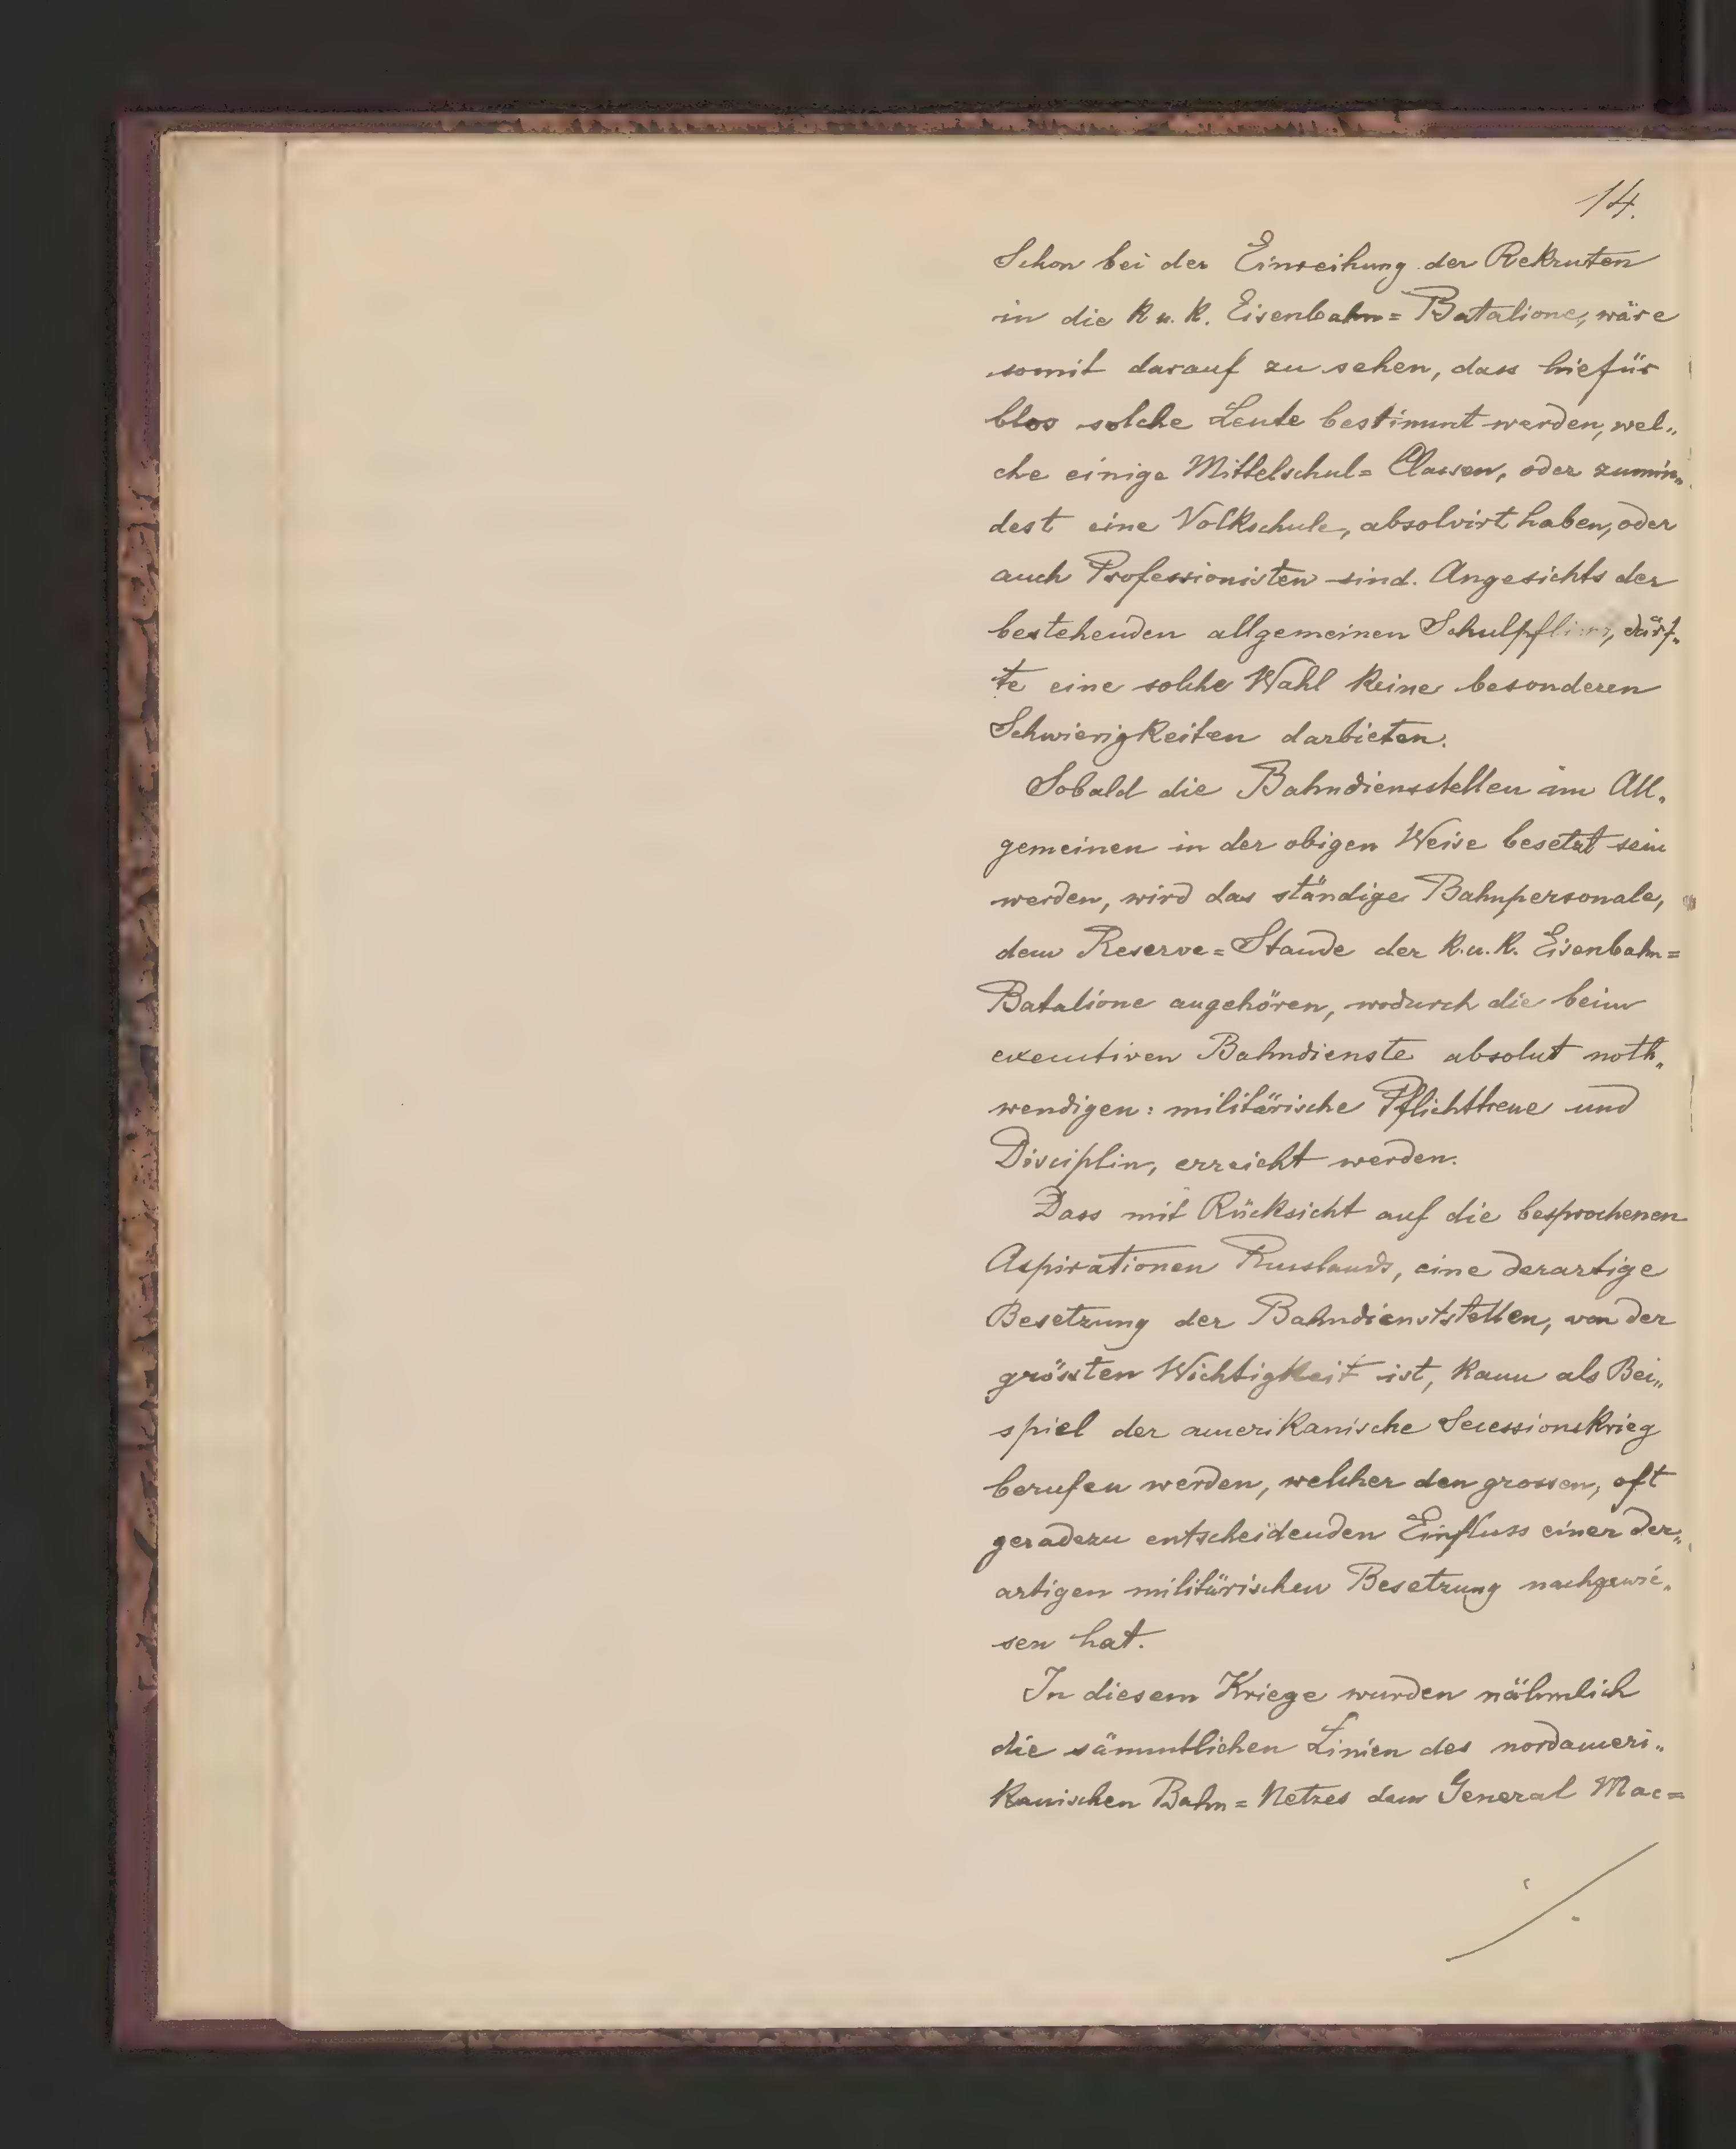 14.
Schon bei der Einreihung der Rekruten
in die k u. k. Eisenbahn= Batalione, wäre
somit darauf zu sehen, dass hiefür
blos solche Leute bestimmt werden, wel„
che einige Mittelschul= Classen, oder zumin„
dest eine Volkschule, absolvirt haben, oder
auch Professionisten sind. Angesichts der
bestehenden allgemeinen dürf„
te eine solche Wahl keine besonderen
Schwierigkeiten darbieten.
Sobald die Bahndiensstellen im All„
gemeinen in der obigen Weise besetzt sein
werden, wird das ständige Bahnpersonale,
dem Reserve=Stande der k. u. k. Eisenbahn=
Batalione angehören, wodurch die beim
executiven Bahndienste absolut noth„
wendigen: militärische Pflichttreue und
Disciplin, erreicht werden.
Dass mit Rücksicht auf die besprochenen
Aspirationen Russlands, eine derartige
Besetzung der Bahndienststellen, von der
grössten Wichtigkeit ist, kann als Bei„
spiel der amerikanische Secessionskrieg
berufen werden, welcher den grossen, oft
geradezu entscheidenden Einfluss einer der„
artigen militärischen Besetzung nachgewie„
sen hat.
In diesem Kriege wurden nähmlich
die sämmtlichen Linien des nordameri„
kanischen Bahn= Netzes dem General Mac=